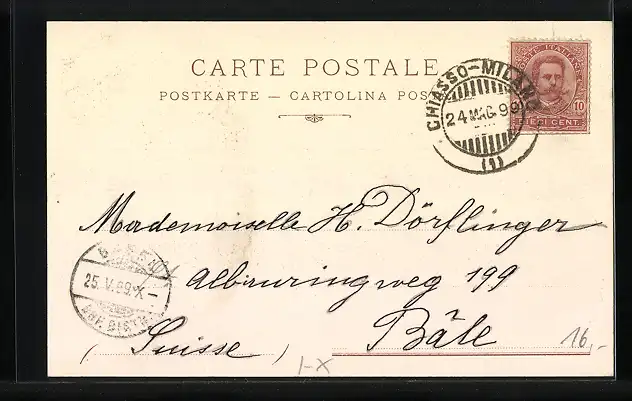 CARTE POSTALE
POSTKARTE — CARTOLINA POS
POSTE ITALIANE
10
DIECI CENT.
CHIASSO-MILANO
24 MAG 99
(1)
Mademoiselle H. Dörflinger
Albanringweg 199
Bâle
(Suisse)
25. V. 99. X –
16,-
I-X